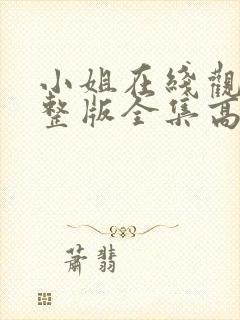 小姐在綫觀
整版全集高
蕭翡